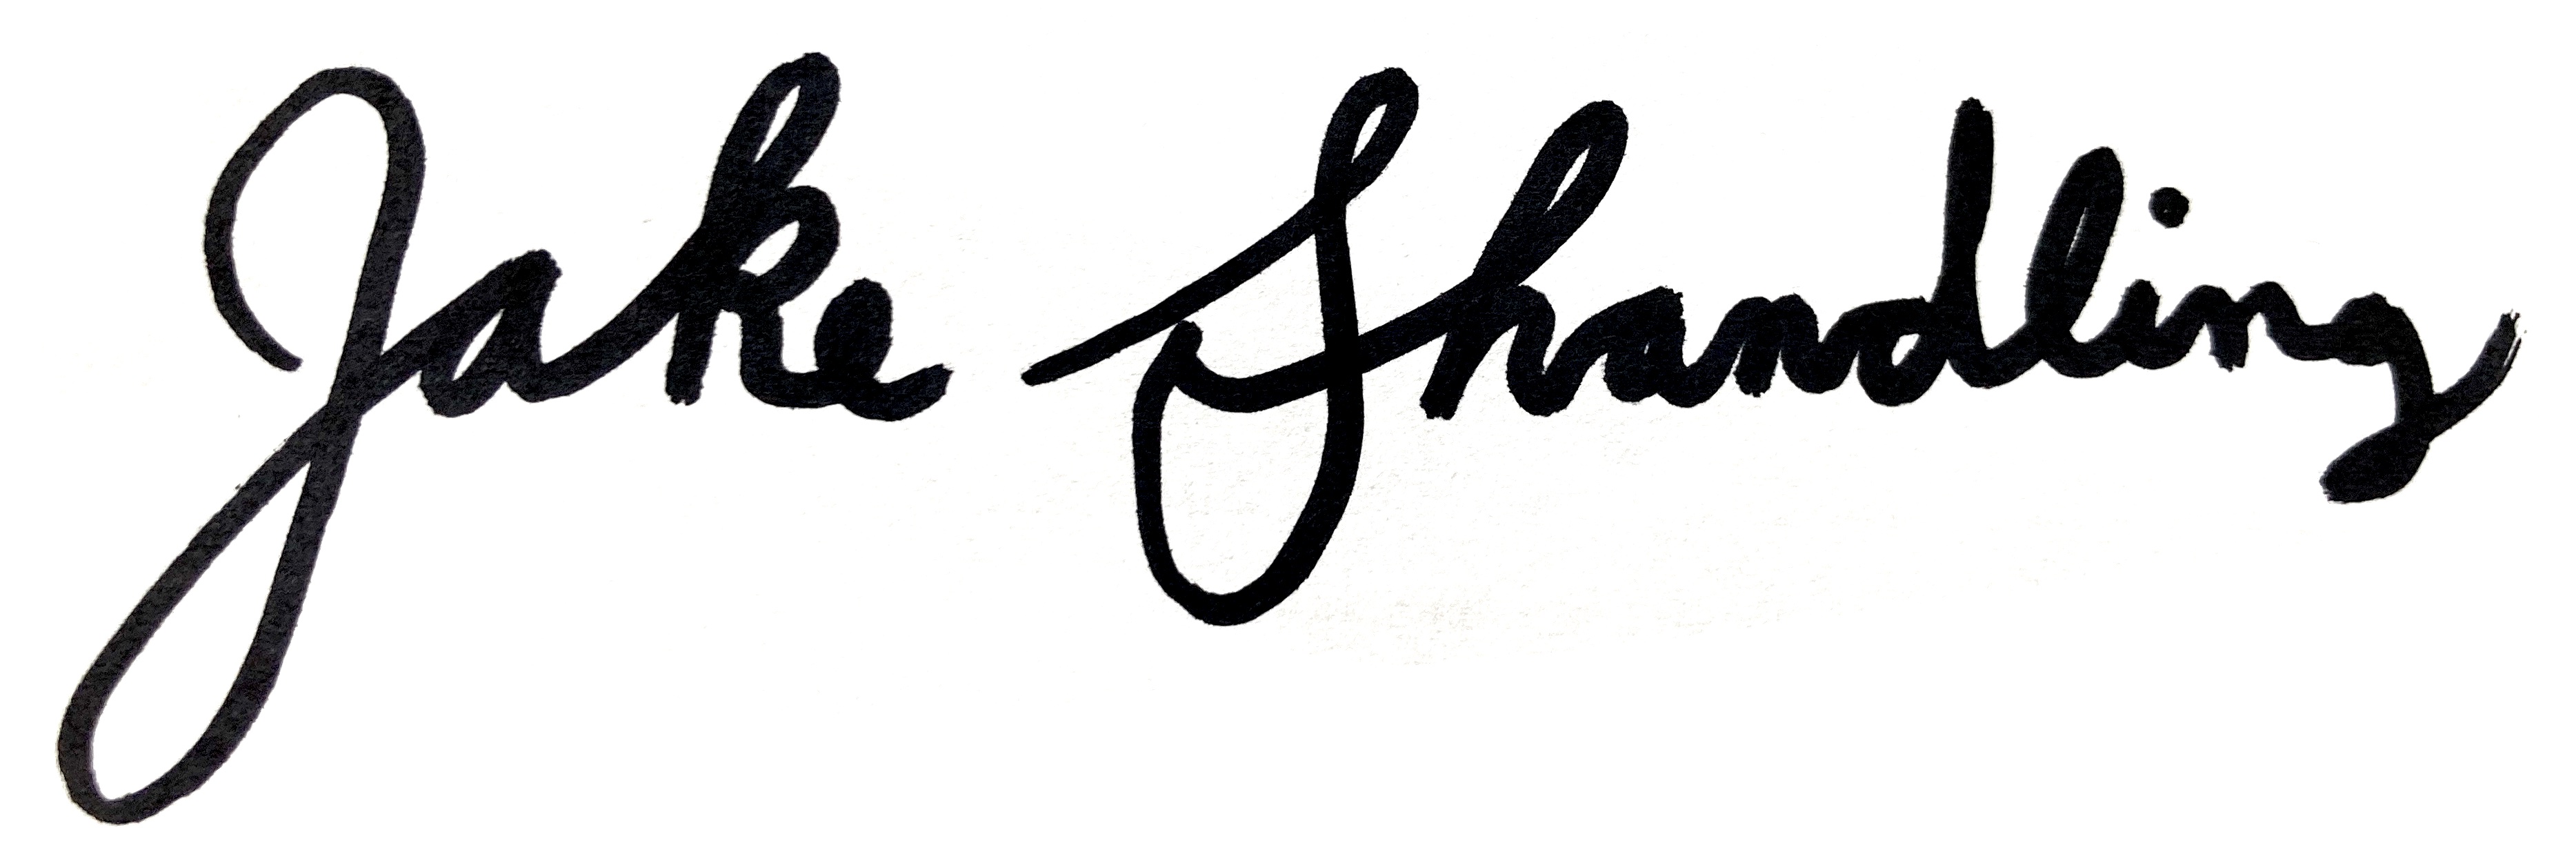 Jake Shandling